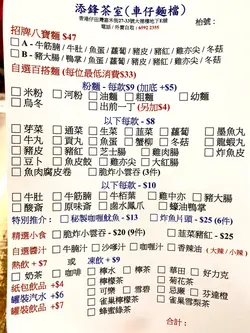 添鋒茶室(車仔麵檔)
電話/外賣自取:6992 2355
枱號:
招牌八寶麵 $47
□ A - 牛筋腩 / 魚蛋 / 蘿蔔 / 豬皮 / 豬紅 / 雞亦尖 / 冬菇
□ B - 豬大腸 / 鴨掌 / 魚蛋 / 蘿蔔 / 豬皮 / 豬紅 / 雞亦尖 / 冬菇
自選百搭麵 (每位最低消費$33)
粉麵 - 每款$9 (加底 +$5)
□ 米粉 □ 河粉 □ 油麵 □ 粗麵 □ 幼麵
□ 烏冬 □ 出前一丁 (另加$4)
以下每款 - $8
□ 芽菜 □ 通菜 □ 生菜 □ 韮菜 □ 蘿蔔 □ 墨魚丸
□ 牛丸 □ 貢丸 □ 魚蛋 □ 蟹柳 □ 冬菇 □ 龍蝦丸
□ 豬皮 □ 豬紅 □ 芝士腸 □ 雞肉腸 □ 炸魚皮
□ 豆卜 □ 魚皮餃 □ 雞亦尖 □ 大紅腸
□ 魚肉腐皮卷 □ 脆炸小雲吞(3件)
以下每款 - $10
□ 牛肚 □ 牛筋腩 □ 牛栢葉 □ 雞中亦 □ 豬大腸
□ 齋 □ 原味齋 □ 滷水鳳爪 □ 蠔油鴨掌
特別推介: □ 秘製咖喱魷魚 - $13 □ 炸魚片頭 - $25 (6件)
精選小食 □ 脆炸小雲吞 - $20 (9件) □ 韮菜豬紅 - $25
自選醬汁 □ 牛腩汁 □ 沙嗲汁 □ 咖喱汁 □ 香辣油 (大辣 / 小辣)
熱飲 +$7 或 凍飲 +$9
□ 奶茶 □ 咖啡 □ 檸水 □ 檸茶 □ 華田 □ 好力克
紙包飲品 +$4 □ 檸檬茶 □ 菊花茶
罐裝汽水 +$6 □ 可樂 □ 雪碧 □ 忌廉 □ 芬達橙
罐裝飲品 +$7 □ 雀巢檸檬茶 □ 雀巢雪梨茶
□ 蜂蜜綠茶